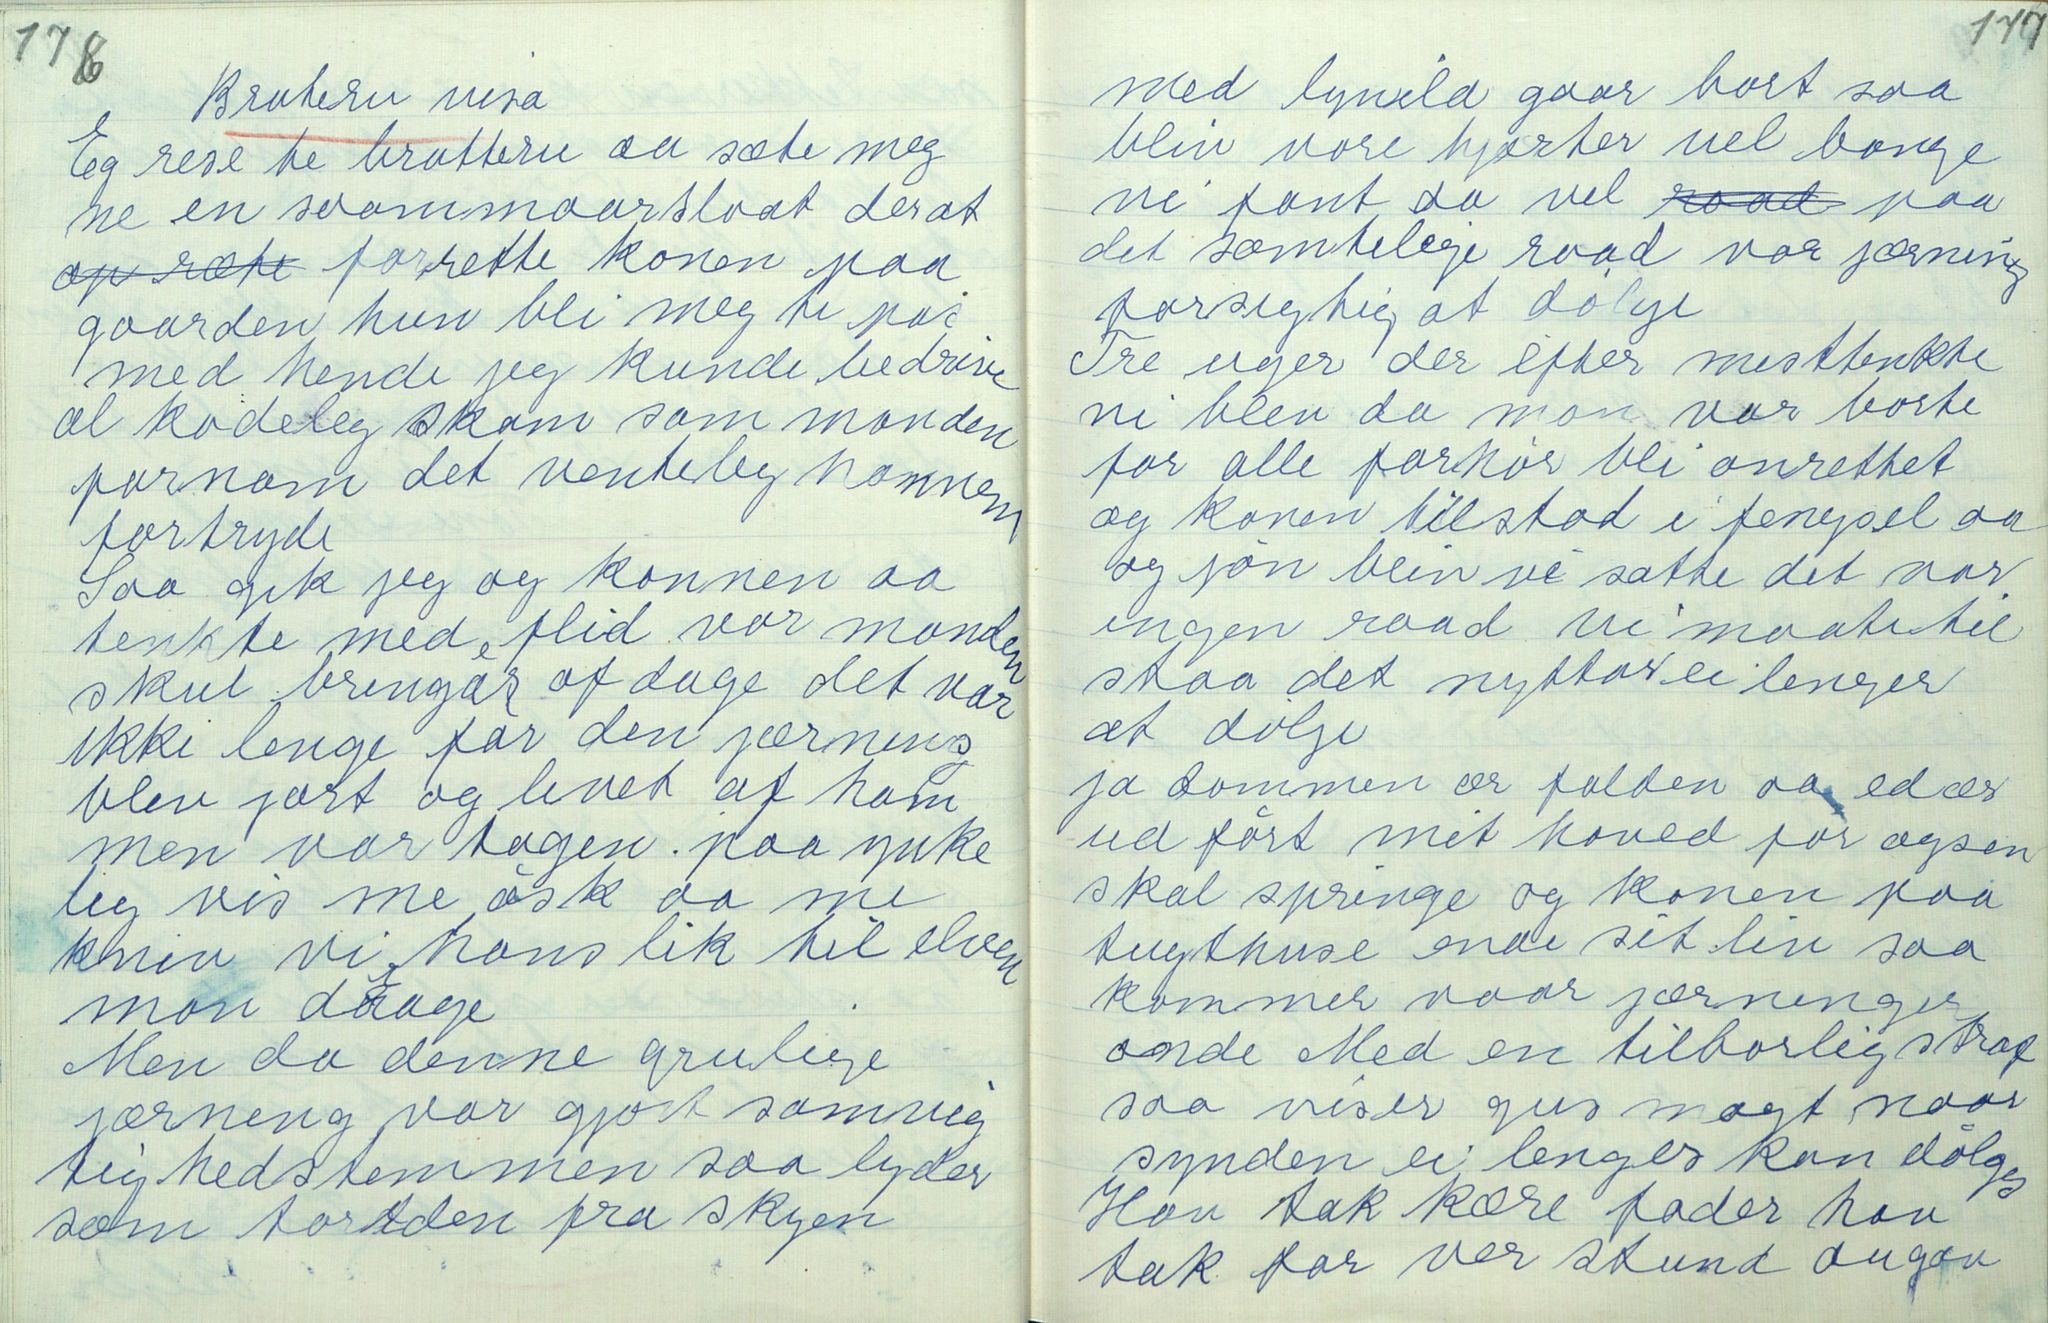 176
Bruteru visa
Eg rese te brutteru aa sæte meg
ne en svommaarsloat derat
op ræte forrette konen paa
gaarden hun bli meg te pas
med hende jeg kunde bedrive
al kodeleg skam som manden
fornam det venteleg hannem
fortryde
Saa gik jeg og konnen aa
tenkte med flid vor manden
skul bringas af dage det var
ikki lenge før den jærning
blev jort og livet af ham
men var tagen. paa ynke
lig vis me øsk aa me
kniv vi hans lik til elven
mon drage
Men da denne grulige
jærning var gjort samvig
tighedstemmen saa lyder
som torden fra skyen
177
med lynild gaar bort saa
bliv vore hjorter vel bange
vi fant da vel raad paa
det sæmtelige raad vor jærning
forsigtig at dølge
Tre uger der efter mesttenkte
vi blev da man var borte
for alle forhør bli anrettet
og konen tilstod i fengsel aa
og jøn blein vi satte det var
ingen raad vi maate til
staa det nyttar ei lenger
at dølge
ja dommen ær falden aa ed ær
ud ført mit hoved for øgsen
skal springe og konen paa
tugthuse ende sit liv saa
kommer vaar jærninger
onde Med en tilborlig straf
saa viser gus magt naar
synden ei lenges kan dølges
Hav tak kære fader hav
tak for ver stund dugav